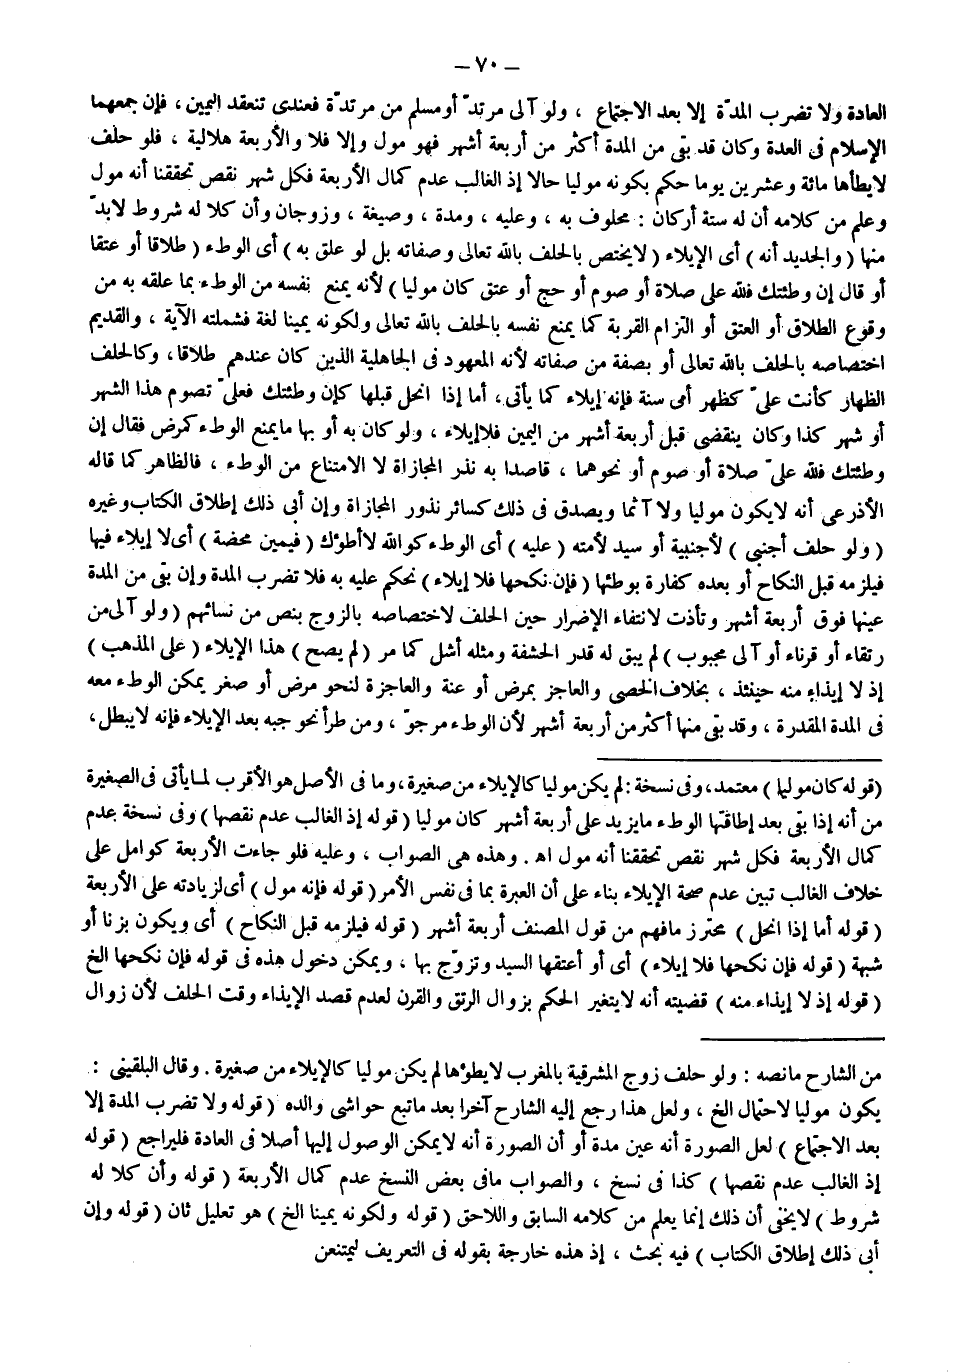 – ٧٠ –
العادة ولا تضرب المدّة إلا بعد الاجتماع ، ولو آلى مرتدّ أو مسلم من مرتدّة فعندى تنعقد اليمين ، فإن جمعهما
الإسلام فى العدة وكان قد بقى من المدة أكثر من أربعة أشهر فهو مول وإلا فلا والأربعة هلالية ، فلو حلف
لايطأها مائة وعشرين يوما حكم بكونه موليا حالا إذ الغالب عدم كمال الأربعة فكل شهر نقص تحققنا أنه مول
وعلم من كلامه أن له ستة أركان : محلوف به ، وعليه ، ومدة ، وصيغة ، وزوجان وأن كلا له شروط لابدّ
منها ( والجديد أنه ) أى الإيلاء ( لايختص بالحلف بالله تعالى وصفاته بل لو علق به ) أى الوطء ( طلاقا أو عتقا
أو قال إن وطئتك فلله على صلاة أو صوم أو حج أو عتق كان موليا ) لأنه يمنع نفسه من الوطء بما علقه به من
وقوع الطلاق أو العتق أو التزام القربة كما يمنع نفسه بالحلف بالله تعالى ولكونه يمينا لغة فشملته الآية ، والقديم
اختصاصه بالحلف بالله تعالى أو بصفة من صفاته لأنه المعهود فى الجاهلية الذين كان عندهم طلاقا ، وكالحلف
الظهار كأنت علىّ كظهر أمى سنة فإنه إيلاء كما يأتى ، أما إذا انحل قبلها كإن وطئتك فعلىّ صوم هذا الشهر
أو شهر كذا وكان ينقضى قبل أربعة أشهر من اليمين فلا إيلاء ، ولو كان به أو بها مايمنع الوطء كمرض فقال إن
وطئتك فلله علىّ صلاة أو صوم أو نحوهما ، قاصدا به نذر المجازاة لا الامتناع من الوطء ، فالظاهر كما قاله
الأذرعى أنه لايكون موليا ولا آثما ويصدق فى ذلك كسائر نذور المجازاة وإن أبى ذلك إطلاق الكتاب وغيره
( ولو حلف أجنبى ) لأجنبية أو سيد لأمته ( عليه ) أى الوطء كوالله لا أطؤك ( فيمين محضة ) أى لا إيلاء فيها
فيلزمه قبل النكاح أو بعده كفارة بوطئها ( فإن نكحها فلا إيلاء ) نحكم عليه به فلا تضرب المدة وإن بقى من المدة
عينها فوق أربعة أشهر وتأذت لانتفاء الإضرار حين الحلف لاختصاصه بالزوج بنص من نسائهم ( ولو آلى من
رتقاء أو قرناء أو آلى مجبوب ) لم يبق له قدر الحشفة ومثله أشل كما مر ( لم يصح ) هذا الإيلاء ( على المذهب )
إذ لا إيذاء منه حينئذ ، بخلاف الخصى والعاجز بمرض أو عنة والعاجزة لنحو مرض أو صغر يمكن الوطء معه
فى المدة المقدرة ، وقد بقى منها أكثر من أربعة أشهر لأن الوطء مرجوّ ، ومن طرأ نحو جبه بعد الإيلاء فإنه لا يبطل ،
( قوله كان موليا ) معتمد ، وفى نسخة : لم يكن موليا كالإيلاء من صغيرة ، وما فى الأصل هو الأقرب لما يأتى فى الصغيرة
من أنه إذا بقى بعد إطاقتها الوطء مايزيد على أربعة أشهر كان موليا ( قوله إذ الغالب عدم نقصها ) وفى نسخة عدم
كمال الأربعة فكل شهر نقص تحققنا أنه مول اهـ . وهذه هى الصواب ، وعليه فلو جاءت الأربعة كوامل على
خلاف الغالب تبين عدم صحة الإيلاء بناء على أن العبرة بما فى نفس الأمر ( قوله فإنه مول ) أى لزيادته على الأربعة
( قوله أما إذا انحل ) محترز مافهم من قول المصنف أربعة أشهر ( قوله فيلزمه قبل النكاح ) أى ويكون بزنا أو
شبهة ( قوله فإن نكحها فلا إيلاء ) أى أو أعتقها السيد وتزوّج بها ، ويمكن دخول هذه فى قوله فإن نكحها الخ
( قوله إذ لا إيذاء منه ) قضيته أنه لايتغير الحكم بزوال الرتق والقرن لعدم قصد الإيذاء وقت الحلف لأن زوال
من الشارح مانصه : ولو حلف زوج المشرقية بالمغرب لايطؤها لم يكن موليا كالإيلاء من صغيرة . وقال البلقينى :
يكون موليا لاحتمال الخ ، ولعل هذا رجع إليه الشارح آخرا بعد ماتبع حواشى والده ( قوله ولا تضرب المدة إلا
بعد الاجتماع ) لعل الصورة أنه عين مدة أو أن الصورة أنه لايمكن الوصول إليها أصلا فى العادة فليراجع ( قوله
إذ الغالب عدم نقصها ) كذا فى نسخ ، والصواب مافى بعض النسخ عدم كمال الأربعة ( قوله وأن كلا له
شروط ) لايخفى أن ذلك إنما يعلم من كلامه السابق واللاحق ( قوله ولكونه يمينا الخ ) هو تعليل ثان ( قوله وإن
أبى ذلك إطلاق الكتاب ) فيه بحث ، إذ هذه خارجة بقوله فى التعريف ليمتنعن